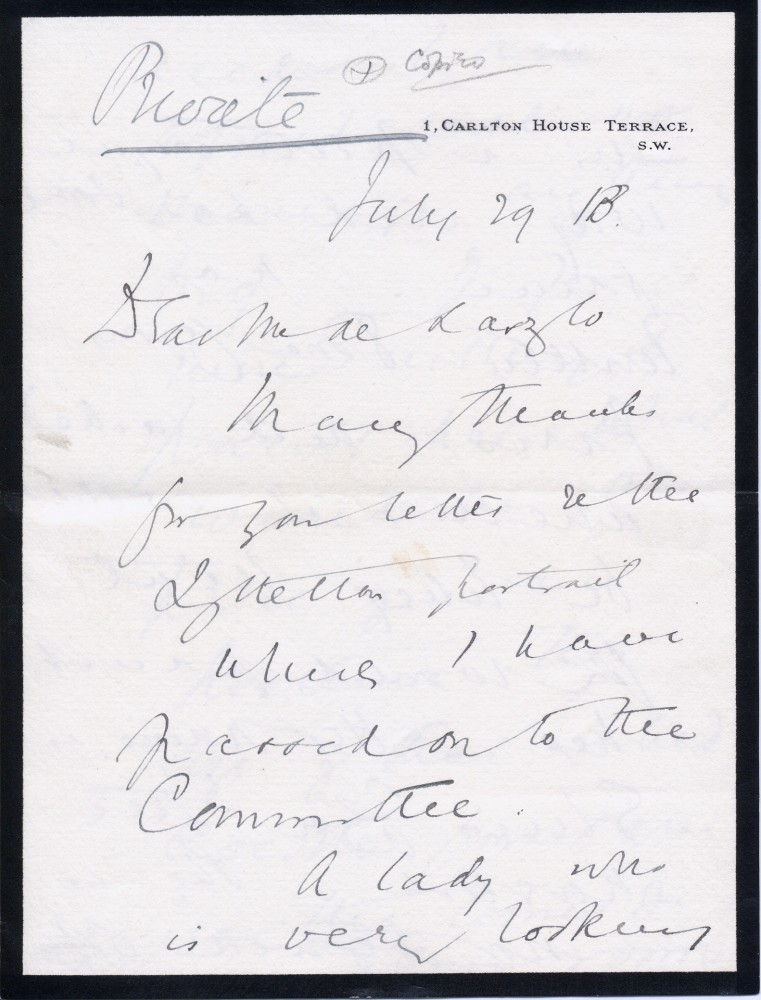 Private
+ Copied
1, CARLTON HOUSE TERRACE,
S.W.
July 29 13.
Dear Mr de Laszlo
Many thanks
for your letter re the
Lyttelton portrait
which I have
passed on to the
Committee.
A lady who
is very